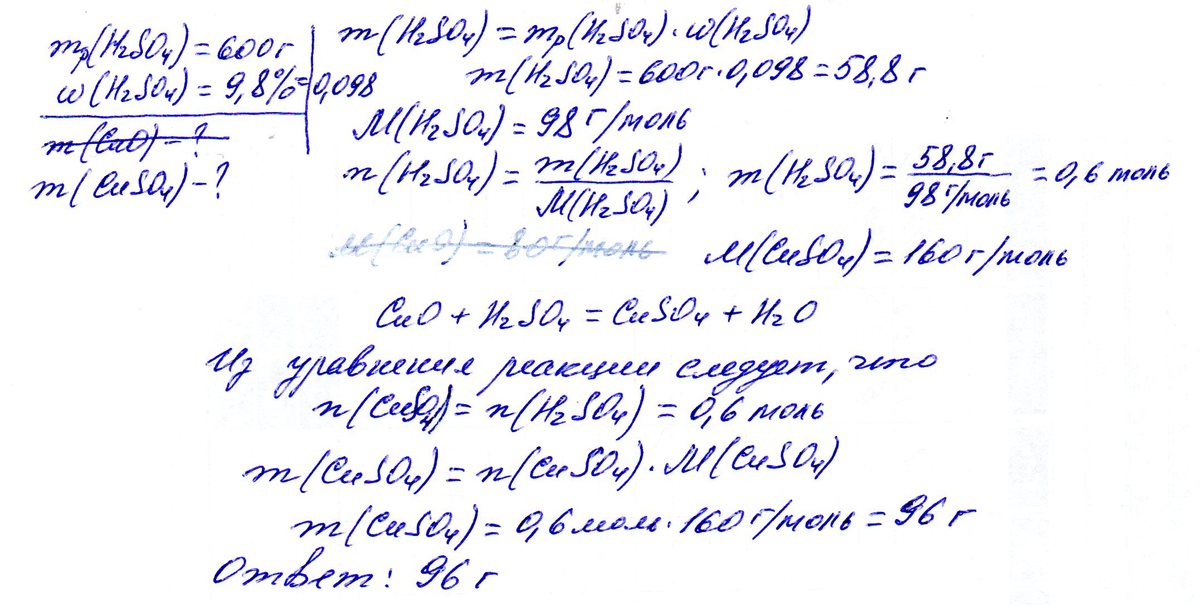 mр(H₂SO₄) = 600г
ω(H₂SO₄) = 9,8% = 0,098
m(CuO) - ?
m(CuSO₄) - ?
m(H₂SO₄) = mр(H₂SO₄) · ω(H₂SO₄)
m(H₂SO₄) = 600г · 0,098 = 58,8 г
M(H₂SO₄) = 98 г/моль
n(H₂SO₄) = m(H₂SO₄) / M(H₂SO₄) ; m(H₂SO₄) = 58,8г / 98 г/моль = 0,6 моль
M(CuO) = 80 г/моль M(CuSO₄) = 160 г/моль
CuO + H₂SO₄ = CuSO₄ + H₂O
Из уравнения реакции следует, что
n(CuSO₄) = n(H₂SO₄) = 0,6 моль
m(CuSO₄) = n(CuSO₄) · M(CuSO₄)
m(CuSO₄) = 0,6 моль · 160 г/моль = 96 г
Ответ: 96 г